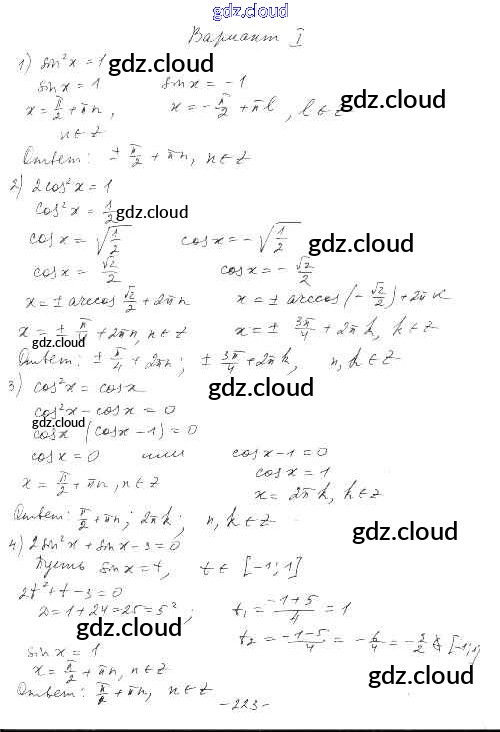 gdz.cloud
Вариант I
1) sin²x = 1 gdz.cloud
sin x = 1 sin x = -1
x = π/2 + πn, x = -π/2 + πl, l ∈ Z gdz.cloud
n ∈ Z
Ответ: ± π/2 + πn, n ∈ Z gdz.cloud
2) 2cos²x = 1
cos²x = 1/2 gdz.cloud
cos x = √(1/2) cos x = -√(1/2) gdz.cloud
cos x = √2/2 cos x = -√2/2
x = ± arccos √2/2 + 2πn x = ± arccos(-√2/2) + 2πk
x = ± π/4 + 2πn, n ∈ Z x = ± 3π/4 + 2πk, k ∈ Z
gdz.cloud
Ответ: ± π/4 + 2πn; ± 3π/4 + 2πk, n, k ∈ Z
3) cos²x = cos x gdz.cloud
cos²x - cos x = 0
gdz.cloud
cos x (cos x - 1) = 0
cos x = 0 или cos x - 1 = 0
cos x = 1
x = π/2 + πn, n ∈ Z x = 2πk, k ∈ Z
Ответ: π/2 + πn; 2πk; n, k ∈ Z
gdz.cloud
4) 2sin²x + sin x - 3 = 0
Пусть sin x = t, t ∈ [-1; 1]
2t² + t - 3 = 0
D = 1 + 24 = 25 = 5²; t₁ = (-1+5)/4 = 1
gdz.cloud
t₂ = (-1-5)/4 = -6/4 = -3/2 ∉ [-1; 1]
sin x = 1
x = π/2 + πn, n ∈ Z gdz.cloud
Ответ: π/2 + πn, n ∈ Z
- 223 -